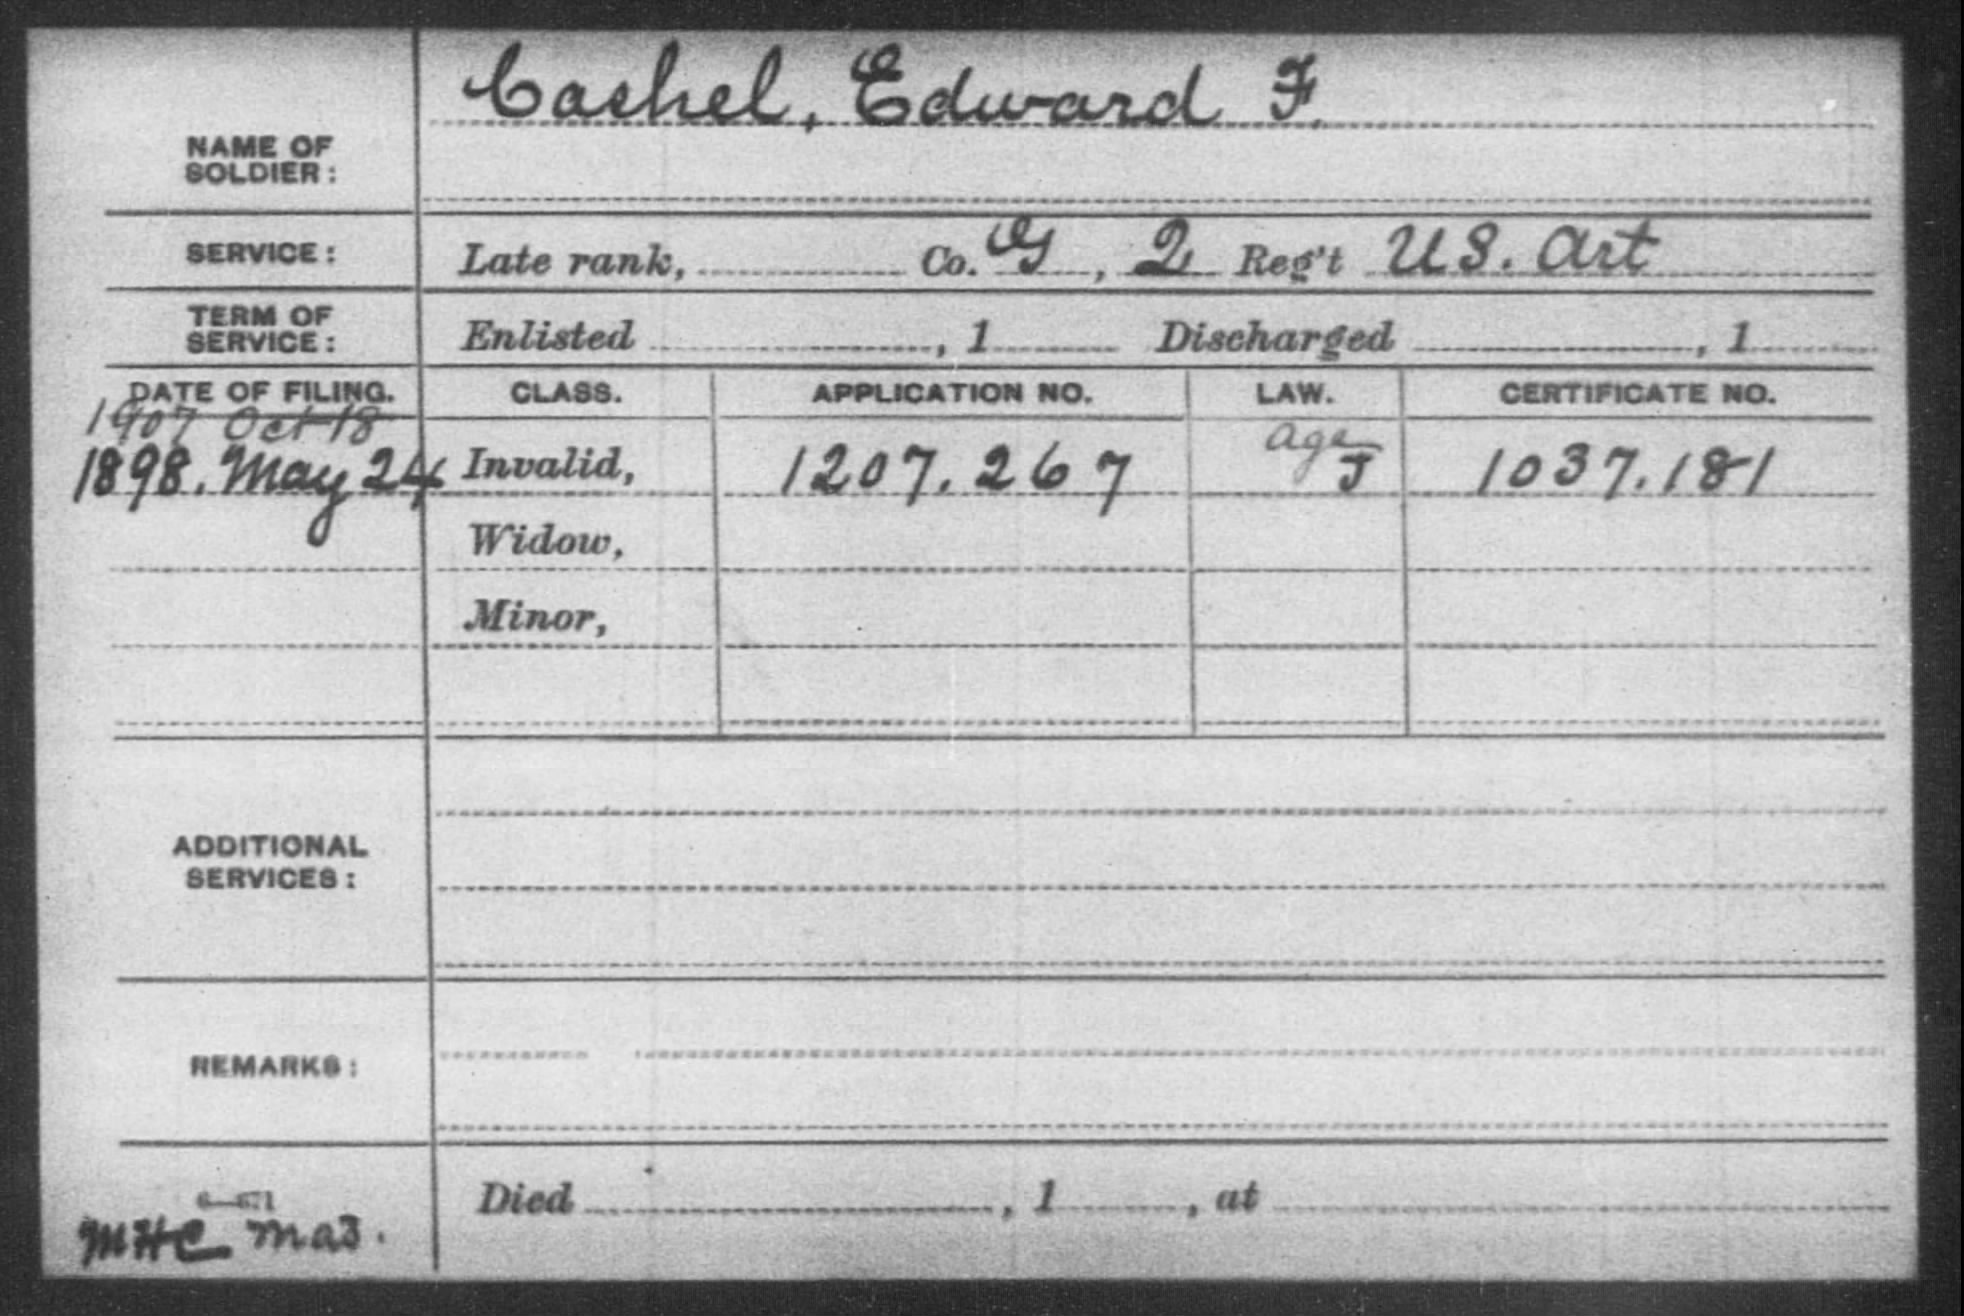 Cashel, Edward F.
NAME OF
SOLDIER:
SERVICE: Late rank, Co. G, 2 Reg't US. Art
TERM OF
SERVICE: Enlisted , 1 Discharged , 1
DATE OF FILING. CLASS. APPLICATION NO. LAW. CERTIFICATE NO.
1907 Oct 18 age
1898. May 24 Invalid, 1207.267 J 1037.181
Widow,
Minor,
ADDITIONAL
SERVICES:
REMARKS:
Died , 1 , at
MHC